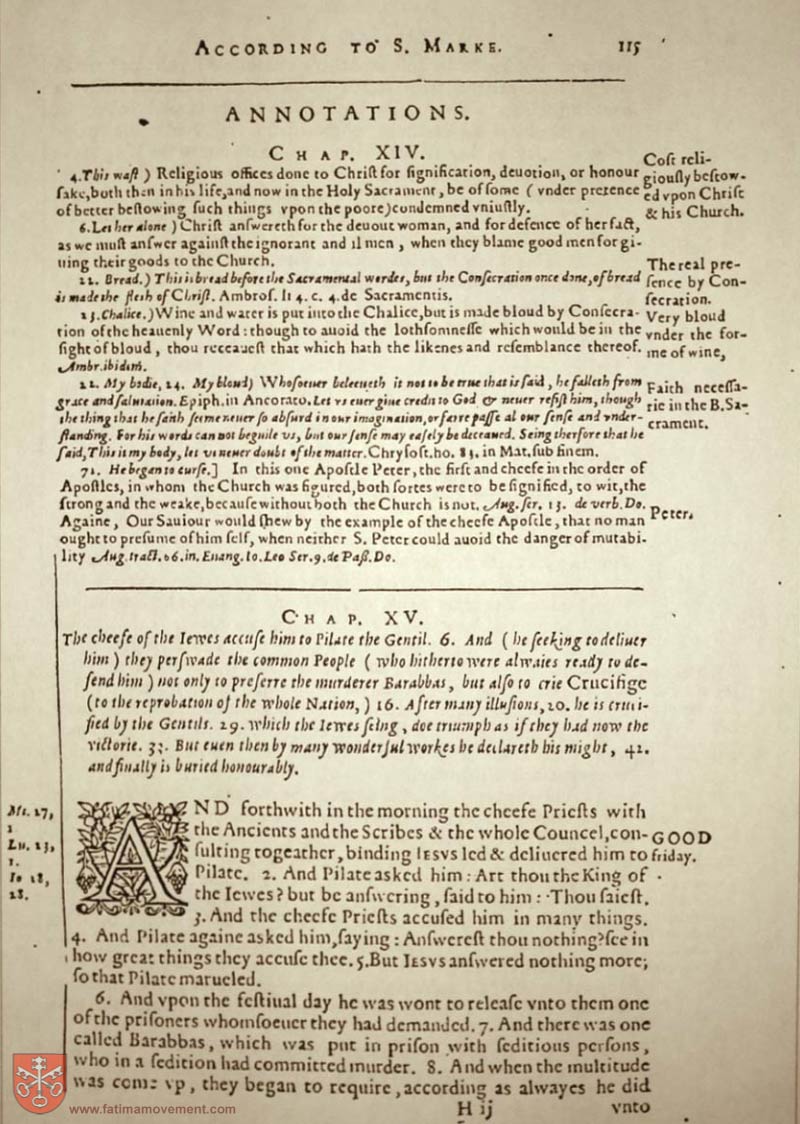 ACCORDING TO S. MARKE. 115
ANNOTATIONS.
CHAP. XIV.
4. This waſt ) Religious offices done to Chriſt for ſignification, deuotion, or honour
ſake, both then in his life, and now in the Holy Sacrament, be of ſome ( vnder pretence
of better beſtowing ſuch things vpon the poore) condemned vniuſtly.
Coſt reli-
giouſly beſtow-
ed vpon Chriſt
& his Church.
6. Let her alone ) Chriſt anſwereth for the deuout woman, and for defence of her fact,
as we muſt anſwer againſt the ignorant and il men , when they blame good men for gi-
uing their goods to the Church.
22. Bread.) This is bread before the Sacramental wordes, but the Conſecration once done, of bread
is made the fleſh of Chriſt. Ambroſ. li 4. c. 4. de Sacramentis.
The real pre-
ſence by Con-
ſecration.
23. Chalice.) Wine and water is put into the Chalice, but is made bloud by Conſecra-
tion of the heauenly Word : though to auoid the lothſomneſſe which would be in the
ſight of bloud , thou receaueſt that which hath the likenes and reſemblance thereof.
Ambr. ibidem.
Very bloud
vnder the for-
me of wine,
22. My bodie, 24. My bloud) Whoſoeuer beleeueth it not to be true that is ſaid , he falleth from
grace and ſaluation. Epiph. in Ancorato. Let vs euer giue credit to God & neuer reſiſt him, though
the thing that he ſaith ſeeme neuer ſo abſurd in our imagination, or farre paſſe al our ſenſe and vnder-
ſtanding. For his words can not beguile vs, but our ſenſe may eaſely be deceaued. Seing therfore that he
ſaid, This is my body, let vs neuer doubt of the matter. Chryſoſt. ho. 83. in Mat. ſub finem.
Faith neceſſa-
rie in the B. Sa-
crament.
71. He began to curſe.] In this one Apoſtle Peter, the firſt and cheefe in the order of
Apoſtles, in whom the Church was figured, both ſortes were to be ſignified, to wit, the
ſtrong and the weake, becauſe without both the Church is not. Aug. ſer. 13. de verb. Do.
Againe , Our Sauiour would ſhew by the example of the cheefe Apoſtle , that no man
ought to preſume of him ſelf, when neither S. Peter could auoid the danger of mutabi-
lity Aug. tract. 66. in. Euang. Io. Leo Ser. 9. de Paſſ. Do.
Peter.
CHAP. XV.
The cheefe of the Iewes accuſe him to Pilate the Gentil. 6. And ( he ſeeking to deliuer
him ) they perſwade the common People ( who hitherto were alwaies ready to de-
fend him ) not only to preferre the murderer Barabbas , but alſo to crie Crucifige
(to the reprobation of the whole Nation, ) 16. After many illuſions, 20. he is cruci-
fied by the Gentils. 29. which the Iewes ſeing , doe triumph as if they had now the
victorie. 33. But euen then by many wonderful workes he declareth his might , 42.
and finally is buried honourably.
Mt. 27,
1
Lu. 23,
1.
Io 18,
28.
AND forthwith in the morning the cheefe Prieſts with
the Ancients and the Scribes & the whole Councel, con-
ſulting togeather, binding IESVS led & deliuered him to
Pilate. 2. And Pilate asked him : Art thou the King of
the Iewes? but he anſwering , ſaid to him : Thou ſaieſt.
3. And the cheefe Prieſts accuſed him in many things.
GOOD
friday.
4. And Pilate againe asked him, ſaying : Anſwereſt thou nothing? ſee in
how great things they accuſe thee. 5. But IESVS anſwered nothing more;
ſo that Pilate marueled.
6. And vpon the feſtiual day he was wont to releaſe vnto them one
of the priſoners whomſoeuer they had demanded. 7. And there was one
called Barabbas, which was put in priſon with ſeditious perſons ,
who in a ſedition had committed murder. 8. And when the multitude
was come vp , they began to require , according as alwayes he did
H ij vnto
www.fatimamovement.com